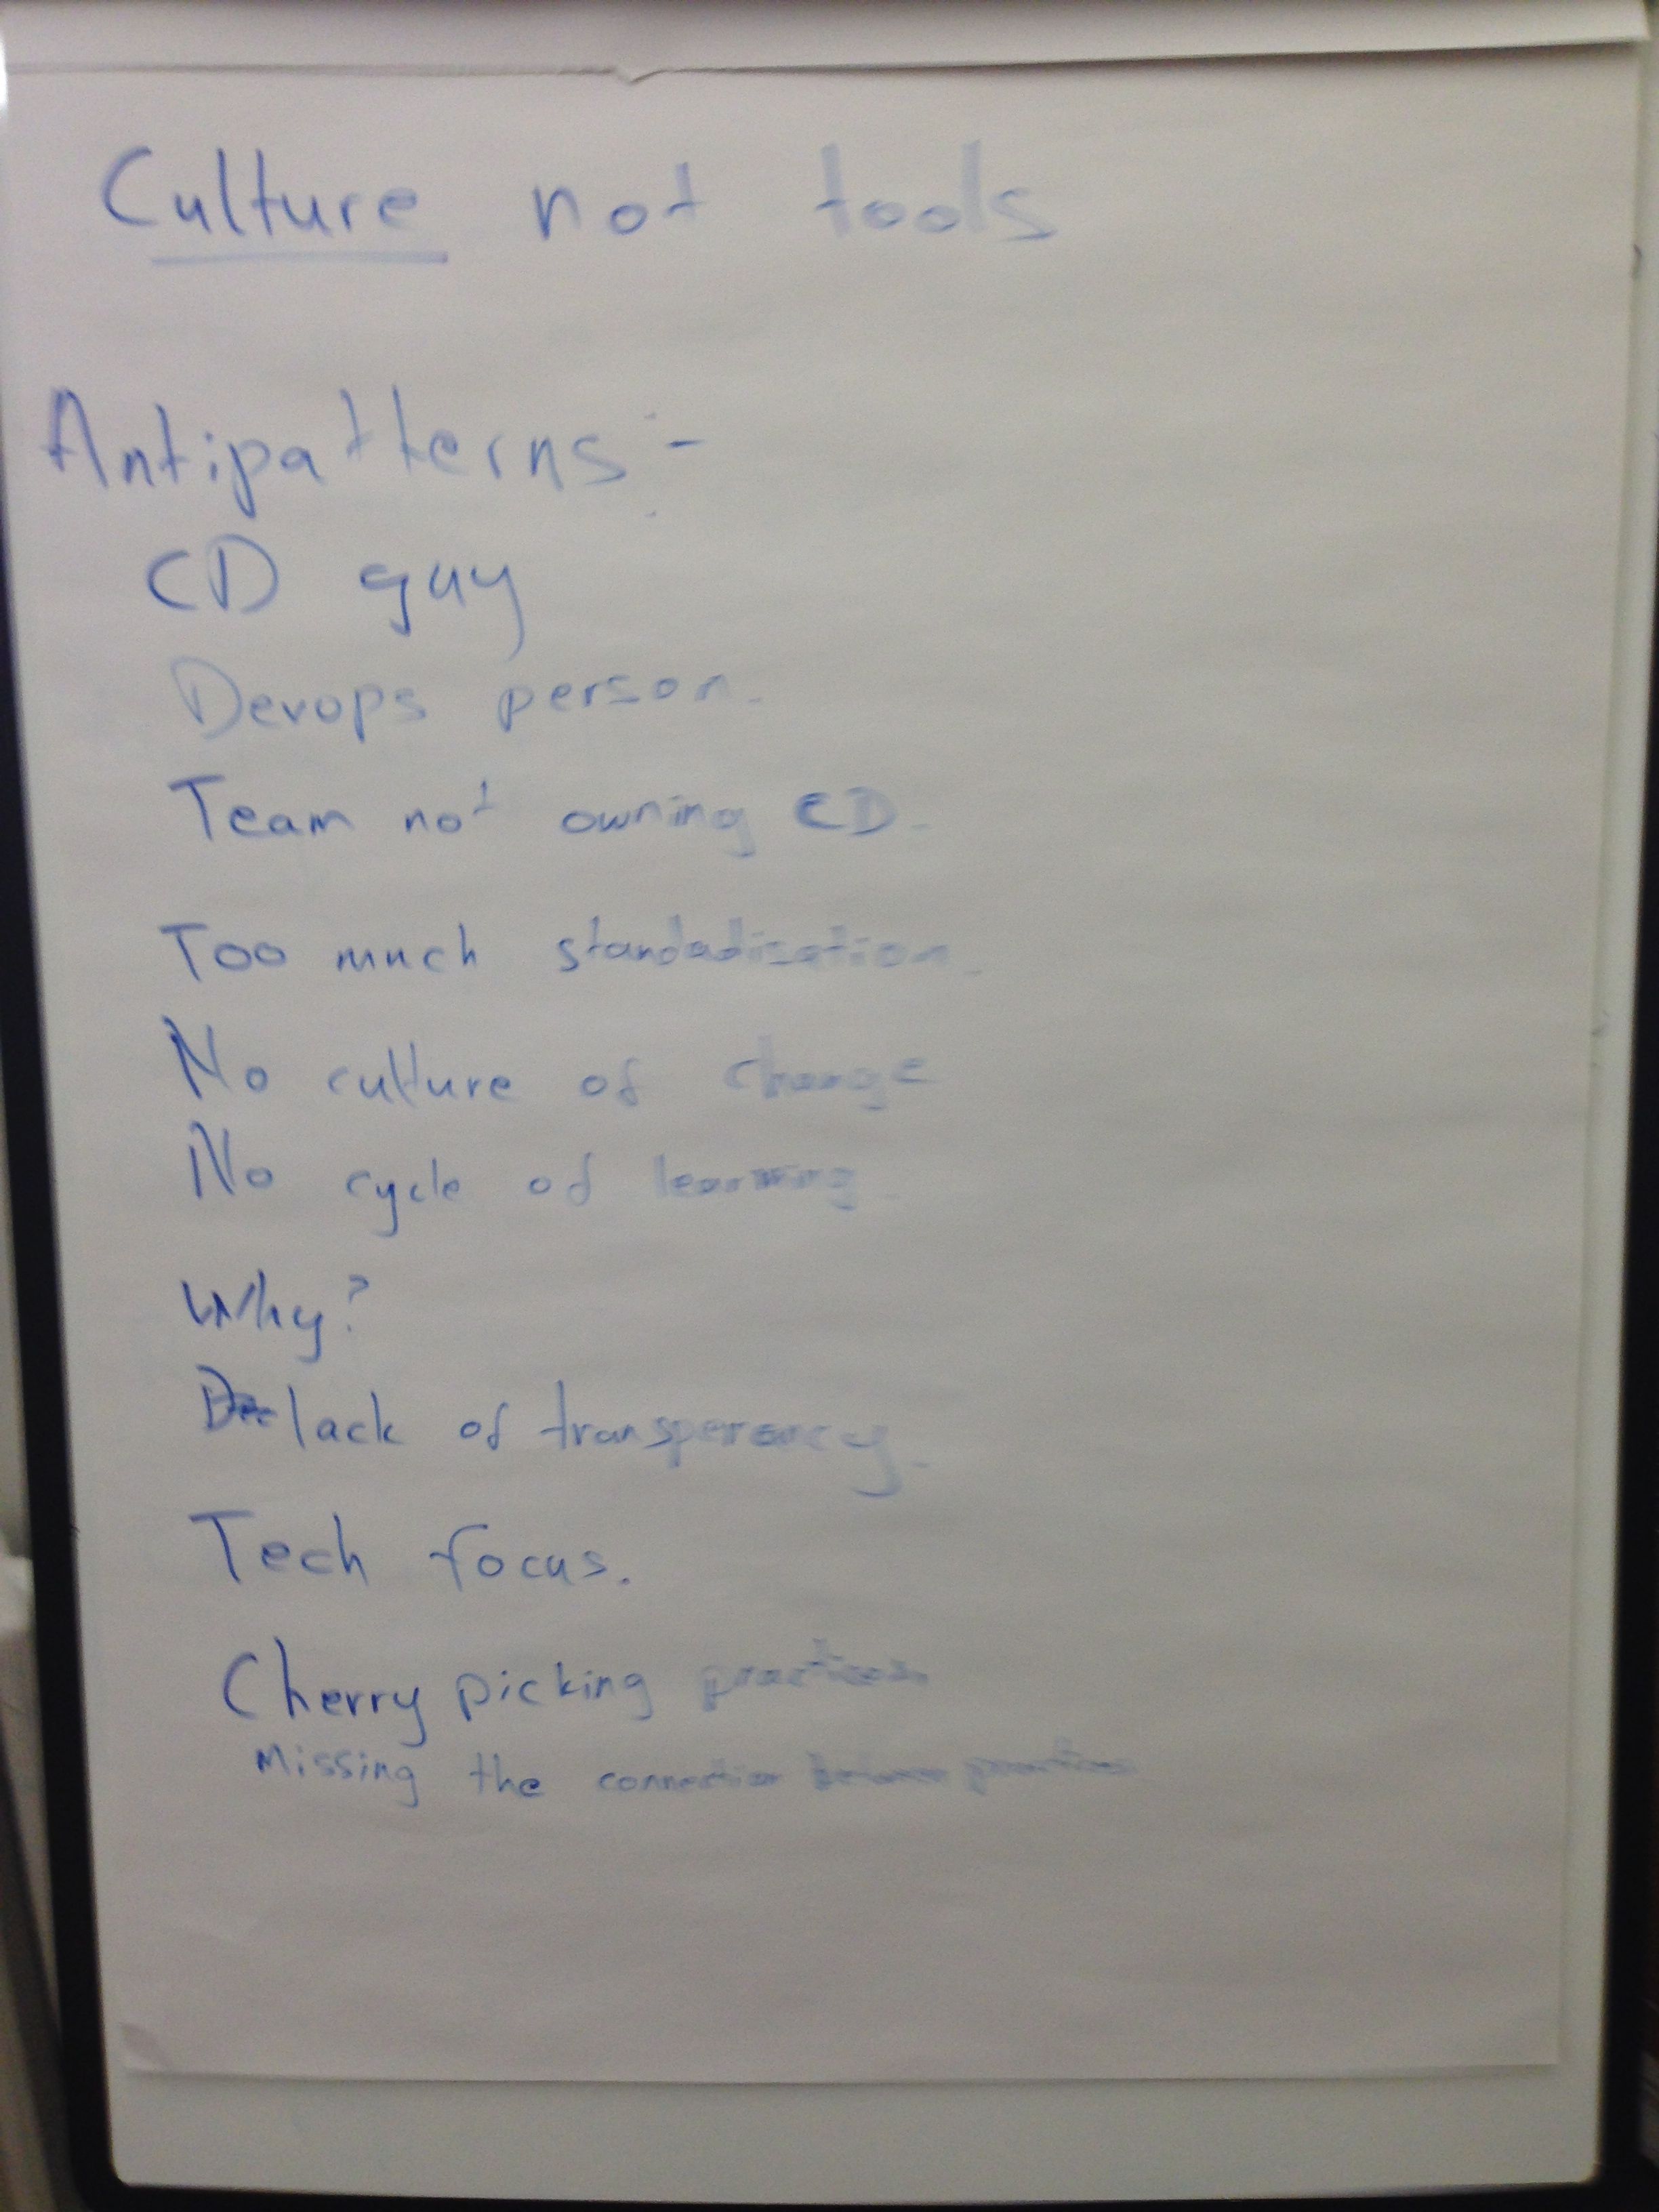 Culture not tools
Antipatterns:-
CD guy
Devops person.
Team not owning CD.
Too much standadization.
No culture of change
No cycle of learning.
Why?
lack of transperancy.
Tech focus.
Cherry picking practices.
Missing the connection between practices